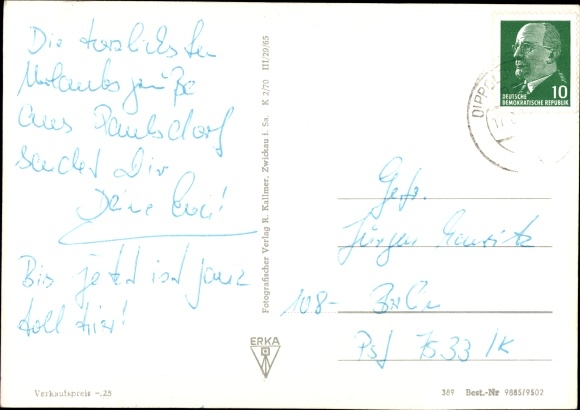 Die herzlichsten
Urlaubsgrüße
aus Paulsdorf
sendet Dir
Deine
Bis jetzt ist ganz
toll hier!
Verkaufspreis -.25
Fotografischer Verlag R. Kallmer, Zwickau i. Sa. K 2/70 III/29/65
ERKA
10
DEUTSCHE
DEMOKRATISCHE REPUBLIK
Gefr.
Jürgen
108- Berlin
Psf 7533/K
389 Best.-Nr 9885/9502